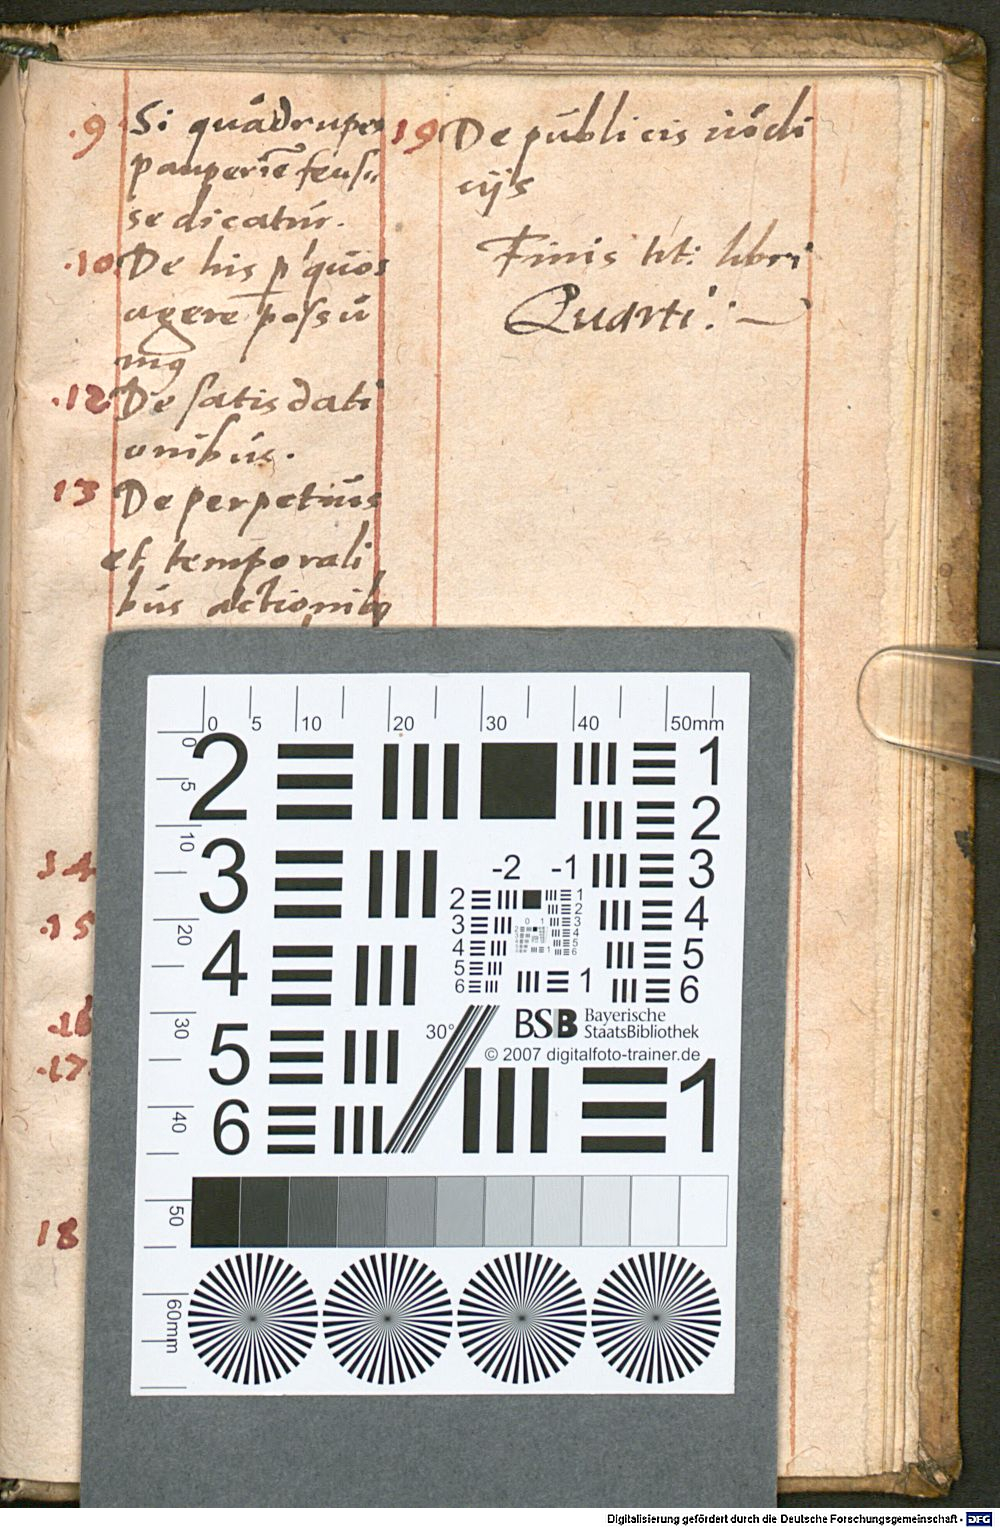 .9 Si quádrupes
pauperiē fecisse
se dicatur.
.10 De his p quos
agere possū
mꝰ
.12 De satis dati
onibús.
13 De perpetúis
et temporali
bús actionibꝰ
14
.15
.16
.17
18
19 De públicis iúdi
cijs
Finis tit: libri
Quarti:
0 5 10 20 30 40 50mm
0 5 10 20 30 40 50 60mm
2 1
2
3 -2 -1 3
4 4
5 5
6 6
2 1
3 2
4 3
5 4
6 5
6
1
30°
BSB Bayerische
StaatsBibliothek
© 2007 digitalfoto-trainer.de
1
Digitalisierung gefördert durch die Deutsche Forschungsgemeinschaft - DFG